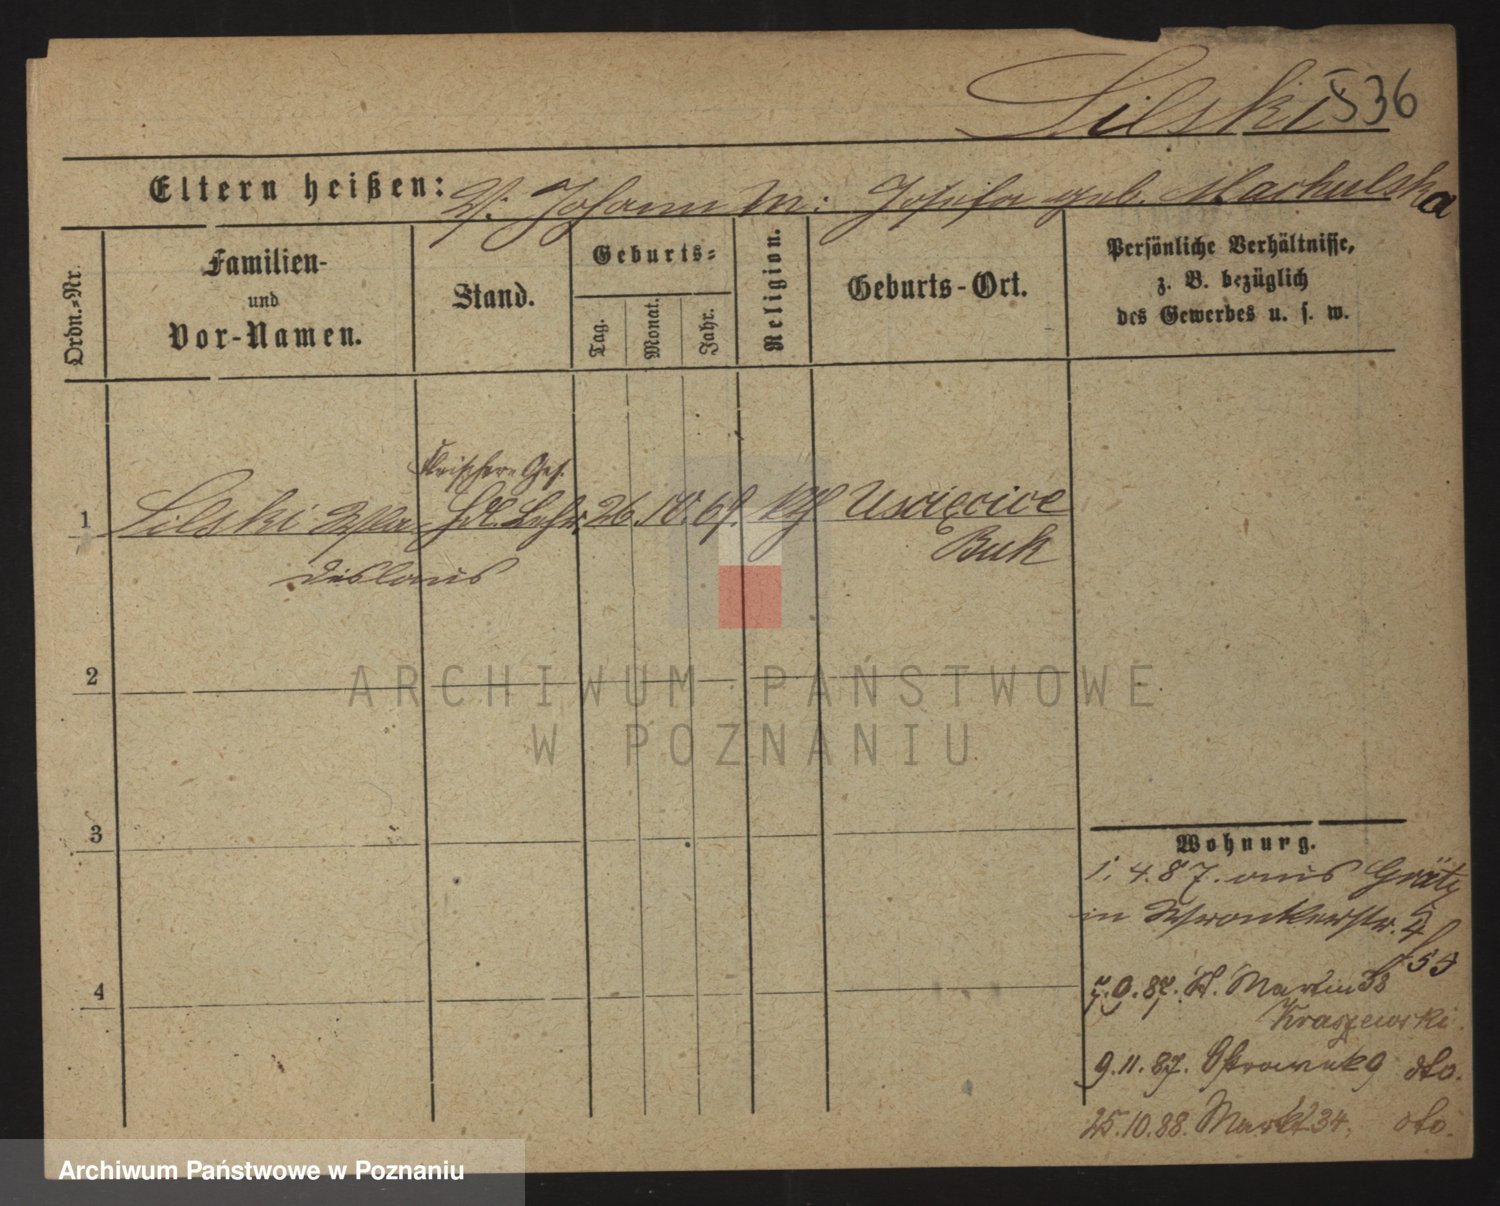 Silski
536
Eltern heißen: V: Johann M: Josefa geb. Markulska
Ordn.-Nr.
Familien-
und
Vor-Namen.
Stand.
Geburts-
Tag.
Monat.
Jahr.
Religion.
Geburts-Ort.
Persönliche Verhältnisse,
z. B. bezüglich
des Gewerbes u. s. w.
Fleischer Ges.
1 Silski Wla- Hdl. Lehr. 26. 10. 69. kth Uscięcice
dislaus
Buk
2
3
4
Wohnung.
1. 4. 87. aus Grätz
in Wronkerstr. 4
f 55
7. 9. 87. St. Martin 38
Kraszewski.
9. 11. 87. Ostrowek 9 dto.
25. 10. 88. Markt 34. dto.
ARCHIWUM PAŃSTWOWE
W POZNANIU
Archiwum Państwowe w Poznaniu